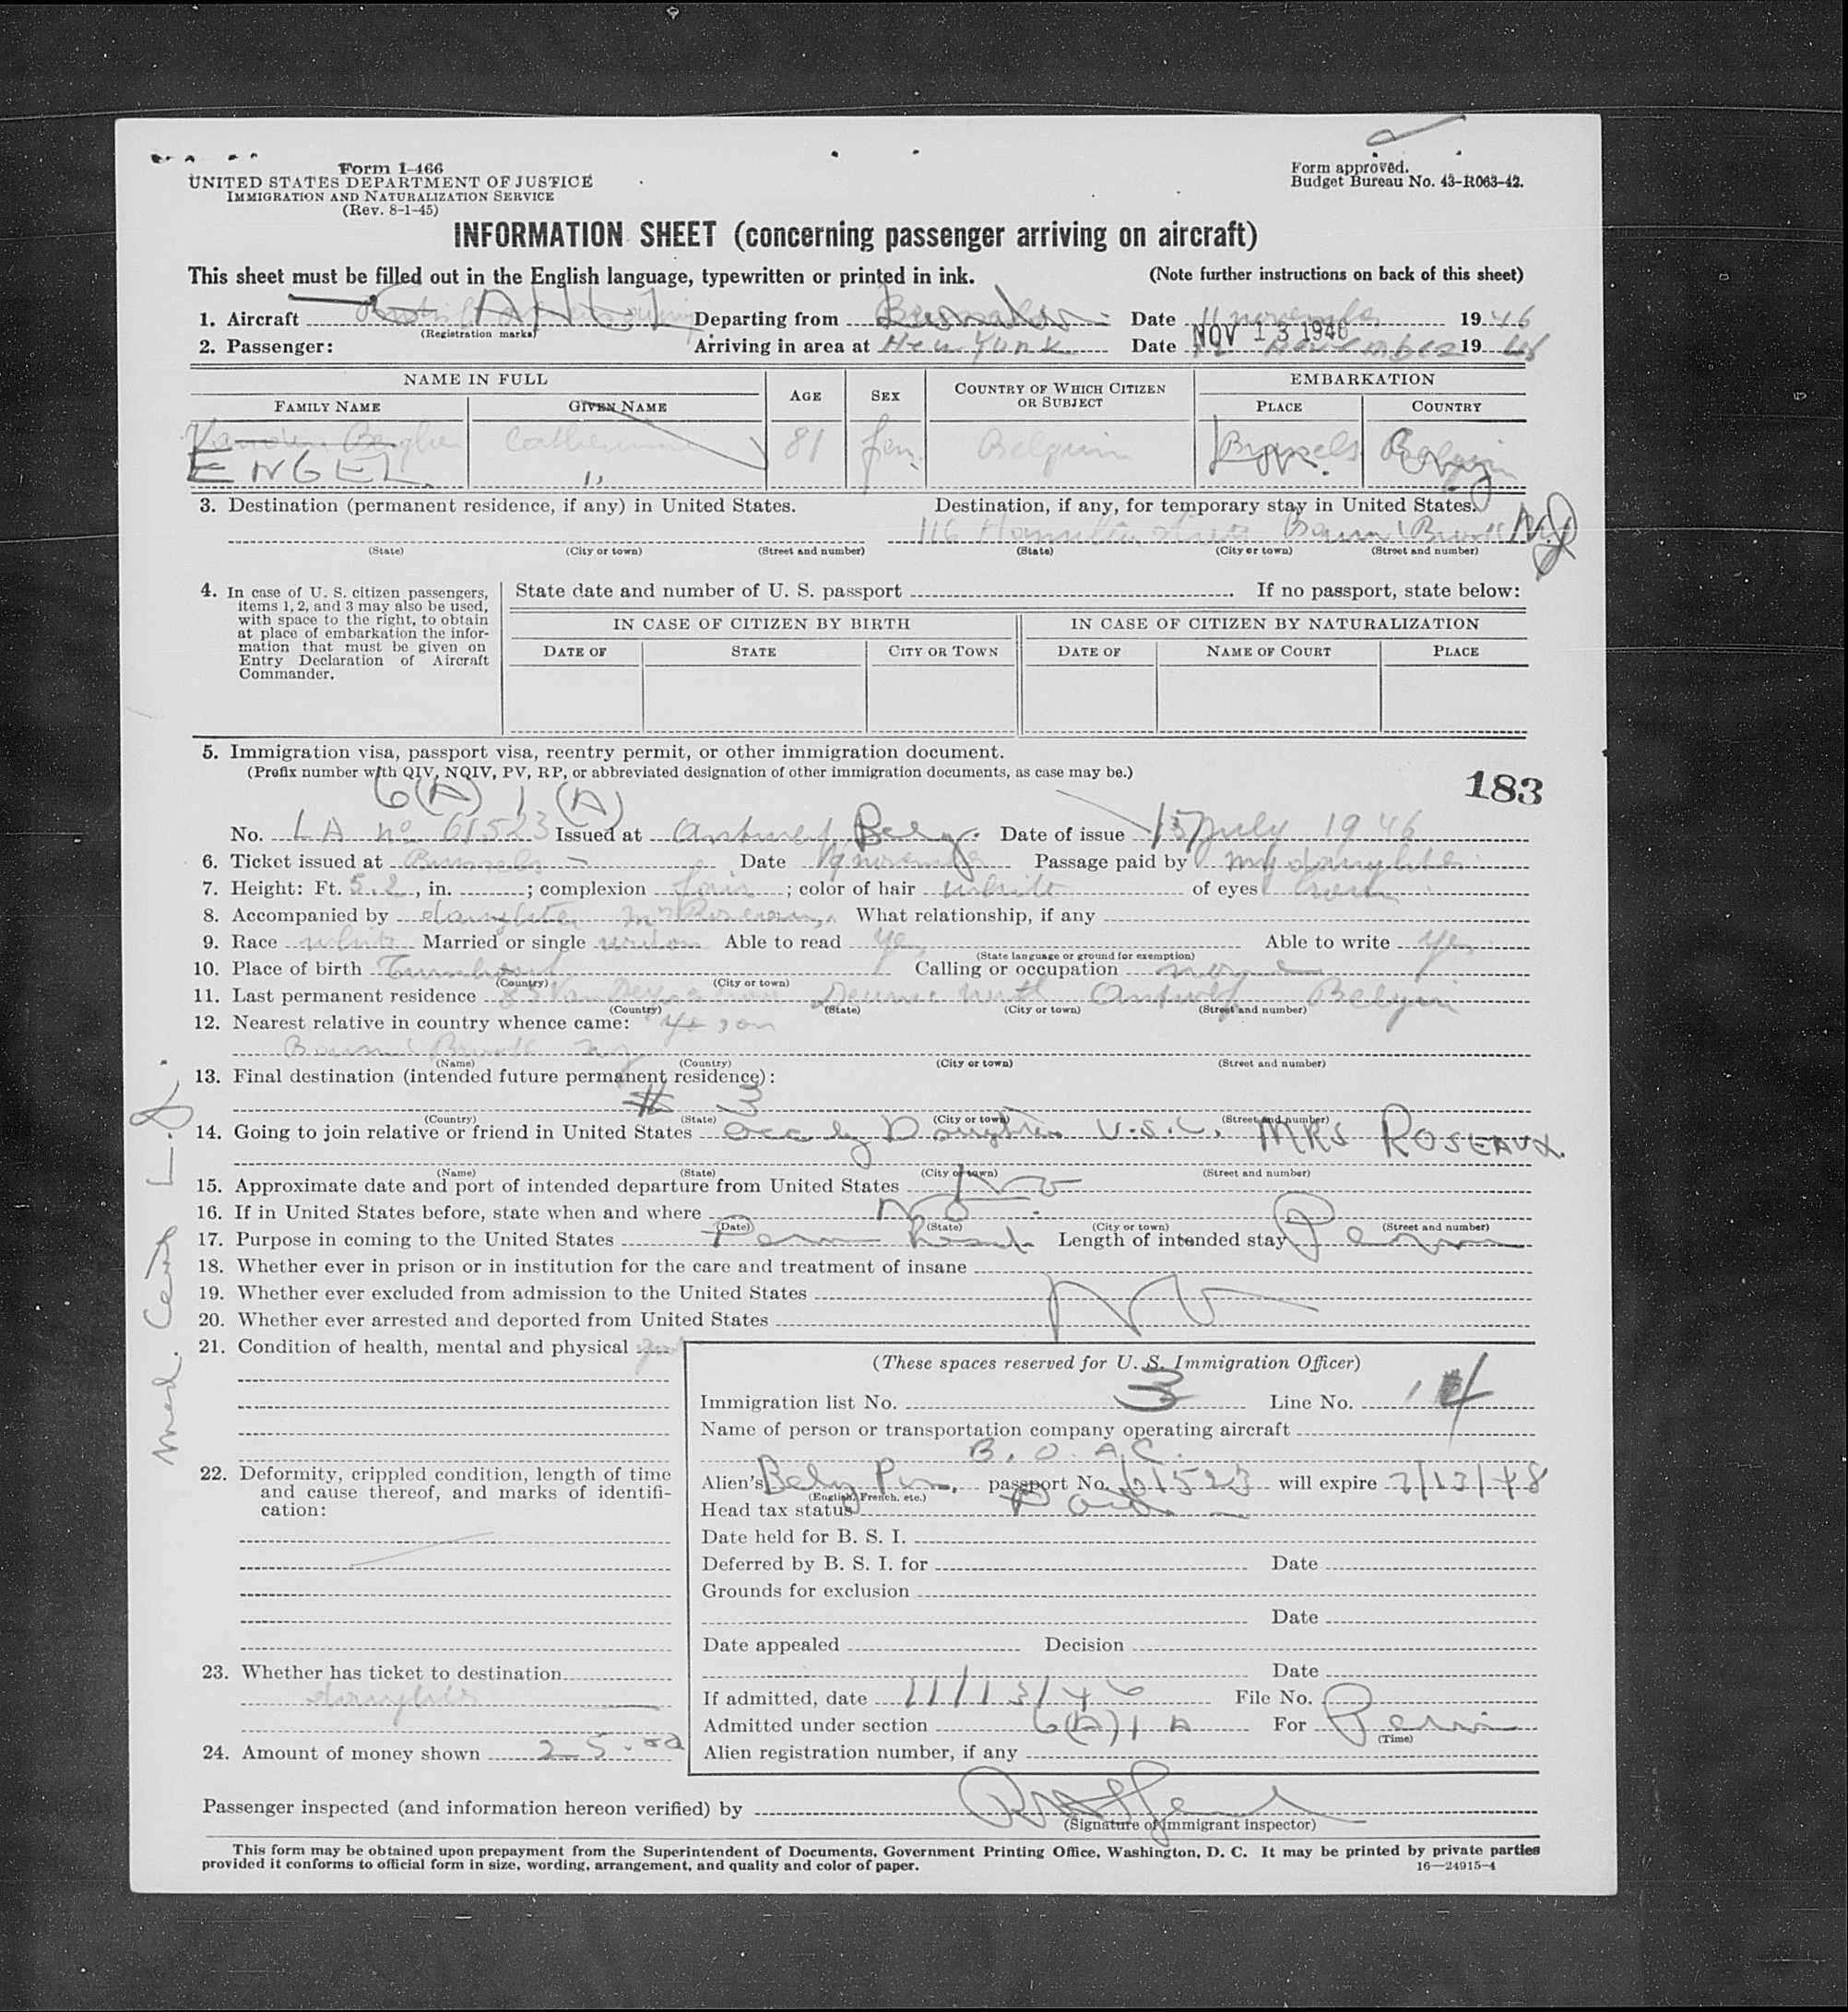 Form I-466
UNITED STATES DEPARTMENT OF JUSTICE
IMMIGRATION AND NATURALIZATION SERVICE
(Rev. 8-1-45)
Form approved.
Budget Bureau No. 43-R063-42.
INFORMATION SHEET (concerning passenger arriving on aircraft)
This sheet must be filled out in the English language, typewritten or printed in ink. (Note further instructions on back of this sheet)
1. Aircraft (Registration marks) Departing from Date 11 november 1946
2. Passenger: Arriving in area at New York Date NOV 13 1946 november 19
NAME IN FULL AGE SEX COUNTRY OF WHICH CITIZEN OR SUBJECT EMBARKATION
FAMILY NAME GIVEN NAME PLACE COUNTRY
Vanden Berghen Catherine 81 fem. Belgium Brussels Belgium
ENGEL "
3. Destination (permanent residence, if any) in United States. Destination, if any, for temporary stay in United States.
116 Hamilton Street Bound Brook N.J.
(State) (City or town) (Street and number) (State) (City or town) (Street and number)
4. In case of U. S. citizen passengers, items 1, 2, and 3 may also be used, with space to the right, to obtain at place of embarkation the information that must be given on Entry Declaration of Aircraft Commander.
State date and number of U. S. passport If no passport, state below:
IN CASE OF CITIZEN BY BIRTH IN CASE OF CITIZEN BY NATURALIZATION
DATE OF STATE CITY OR TOWN DATE OF NAME OF COURT PLACE
5. Immigration visa, passport visa, reentry permit, or other immigration document.
(Prefix number with QIV, NQIV, PV, RP, or abbreviated designation of other immigration documents, as case may be.)
183
6(A) 1 (A)
No. LA no 61523 Issued at Antwerp Belg. Date of issue 13 July 1946
6. Ticket issued at Brussels Date november Passage paid by my daughter
7. Height: Ft. 5.2, in. ; complexion fair ; color of hair white of eyes
8. Accompanied by daughter Mrs Roseaux What relationship, if any
9. Race white Married or single widow Able to read yes Able to write yes
(State language or ground for exemption)
10. Place of birth Turnhout Calling or occupation none
(Country) (City or town)
11. Last permanent residence Deurne north Antwerp Belgium
(Country) (State) (City or town) (Street and number)
12. Nearest relative in country whence came: son
Bound Brook NJ
(Name) (Country) (City or town) (Street and number)
13. Final destination (intended future permanent residence):
# 3
(Country) (State) (City or town) (Street and number)
14. Going to join relative or friend in United States acc by Daughter U.S.C. MRS ROSEAUX.
(Name) (State) (City or town) (Street and number)
15. Approximate date and port of intended departure from United States No
16. If in United States before, state when and where No.
(Date) (State) (City or town) (Street and number)
17. Purpose in coming to the United States Perm Resid. Length of intended stay Perm
18. Whether ever in prison or in institution for the care and treatment of insane
19. Whether ever excluded from admission to the United States No
20. Whether ever arrested and deported from United States
21. Condition of health, mental and physical good
(These spaces reserved for U. S. Immigration Officer)
Immigration list No. 3 Line No. 14
Name of person or transportation company operating aircraft
B.O.A.C.
22. Deformity, crippled condition, length of time and cause thereof, and marks of identification:
Alien's Belg passport No. 61523 will expire 7/13/48
(English, French, etc.)
Head tax status Paid
Date held for B. S. I.
Deferred by B. S. I. for Date
Grounds for exclusion
Date
Date appealed Decision
Date
23. Whether has ticket to destination
daughter
If admitted, date 11/13/46 File No.
Admitted under section 6(A)1 A For Perm
(Time)
24. Amount of money shown 25.00
Alien registration number, if any
Passenger inspected (and information hereon verified) by
(Signature of immigrant inspector)
This form may be obtained upon prepayment from the Superintendent of Documents, Government Printing Office, Washington, D. C. It may be printed by private parties
provided it conforms to official form in size, wording, arrangement, and quality and color of paper. 16—24915-4
Med. Cert